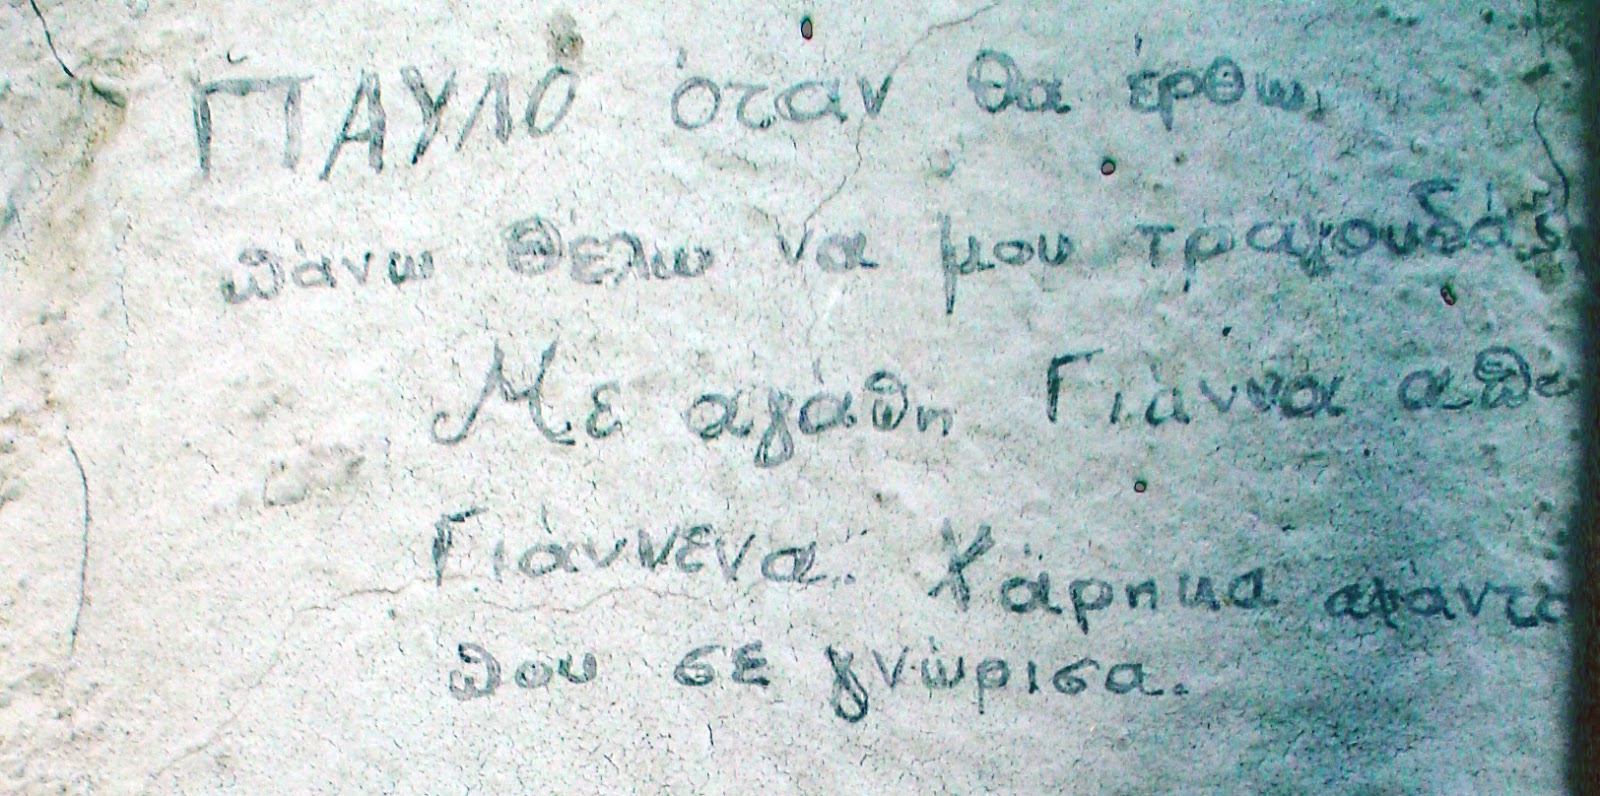 ΠΑΥΛΟ όταν θα έρθω,
πάνω θέλω να μου τραγουδάς
Με αγάπη Γιάννα από
Γιάννενα. Χάρηκα αφάντα
που σε γνώρισα.